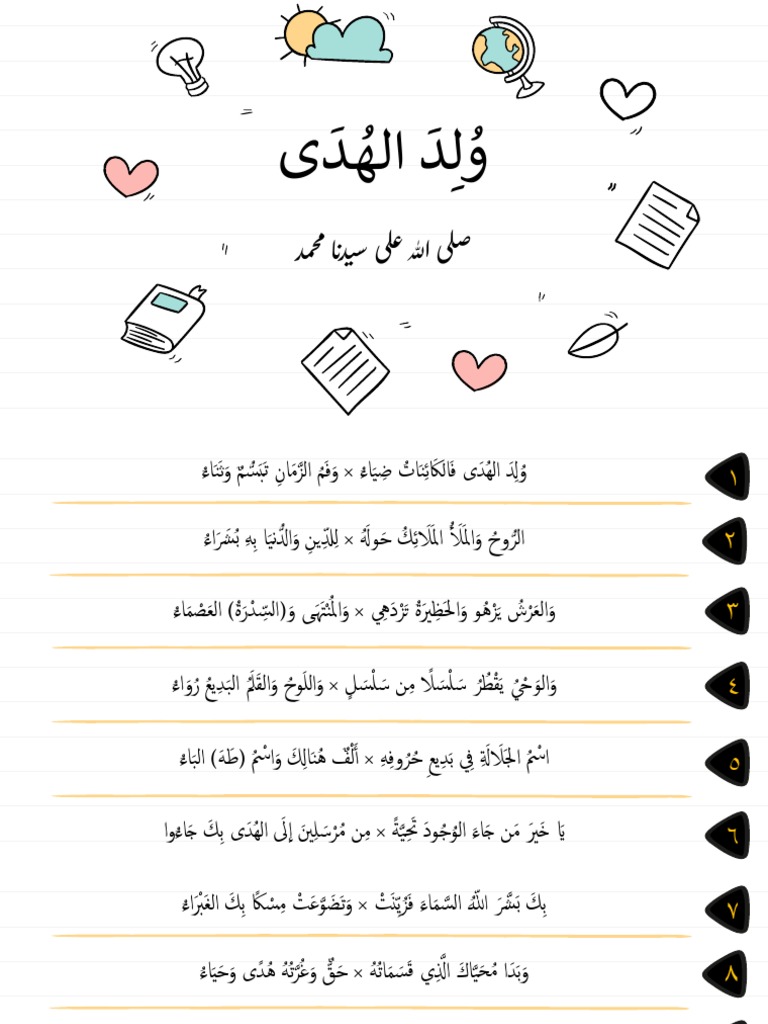 وُلِدَ الهُدَى
صلى الله على سيدنا محمد
وُلِدَ الهُدَى فَالكَائِنَاتُ ضِيَاءُ × وَفَمُ الزَّمَانِ تَبَسُّمٌ وَثَنَاءُ ١
الرُّوحُ وَالمَلَأُ المَلَائِكُ حَولَهُ × لِلدِّينِ وَالدُّنيَا بِهِ بُشَرَاءُ ٢
وَالعَرْشُ يَزْهُو وَالحَظِيرَةُ تَزْدَهِي × وَالمُنْتَهَى وَ(السِّدْرَةُ) العَصْمَاءُ ٣
وَالوَحْيُ يَقْطُرُ سَلْسَلًا مِن سَلْسَلٍ × وَاللَوحُ وَالقَلَمُ البَدِيعُ رُوَاءُ ٤
اسْمُ الجَلَالَةِ فِي بَدِيعِ حُرُوفِهِ × أَلْفٌ هُنَالِكَ وَاسْمُ (طَهَ) البَاءُ ٥
يَا خَيرَ مَن جَاءَ الوُجُودَ تَحِيَّةً × مِن مُرْسَلِينَ إِلَى الهُدَى بِكَ جَاءُوا ٦
بِكَ بَشَّرَ اللهُ السَّمَاءَ فَزُيِّنَتْ × وَتَضَوَّعَتْ مِسْكًا بِكَ الغَبْرَاءُ ٧
وَبَدَا مُحَيَّاكَ الَّذِي قَسَمَاتُهُ × حَقٌّ وَغُرَّتُهُ هُدًى وَحَيَاءُ ٨